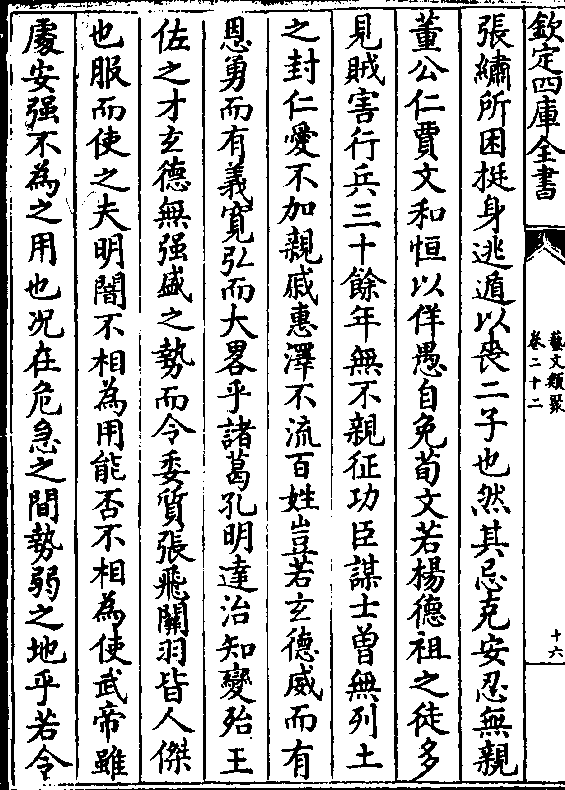 欽定四庫全書
藝文類聚
卷二十二
十六
張繡所困挺身逃遁以喪二子也然其忌克安忍無親
董公仁賈文和恒以佯愚自免荀文若楊德祖之徒多
見賊害行兵三十餘年無不親征功臣謀士曽無列土
之封仁愛不加親戚惠澤不流百姓豈若玄德威而有
恩勇而有義寛弘而大畧乎諸葛孔明達治知變殆王
佐之才玄德無强盛之勢而令委質張飛關羽皆人傑
也服而使之夫明闇不相為用能否不相為使武帝雖
處安强不為之用也况在危急之間勢弱之地乎若令